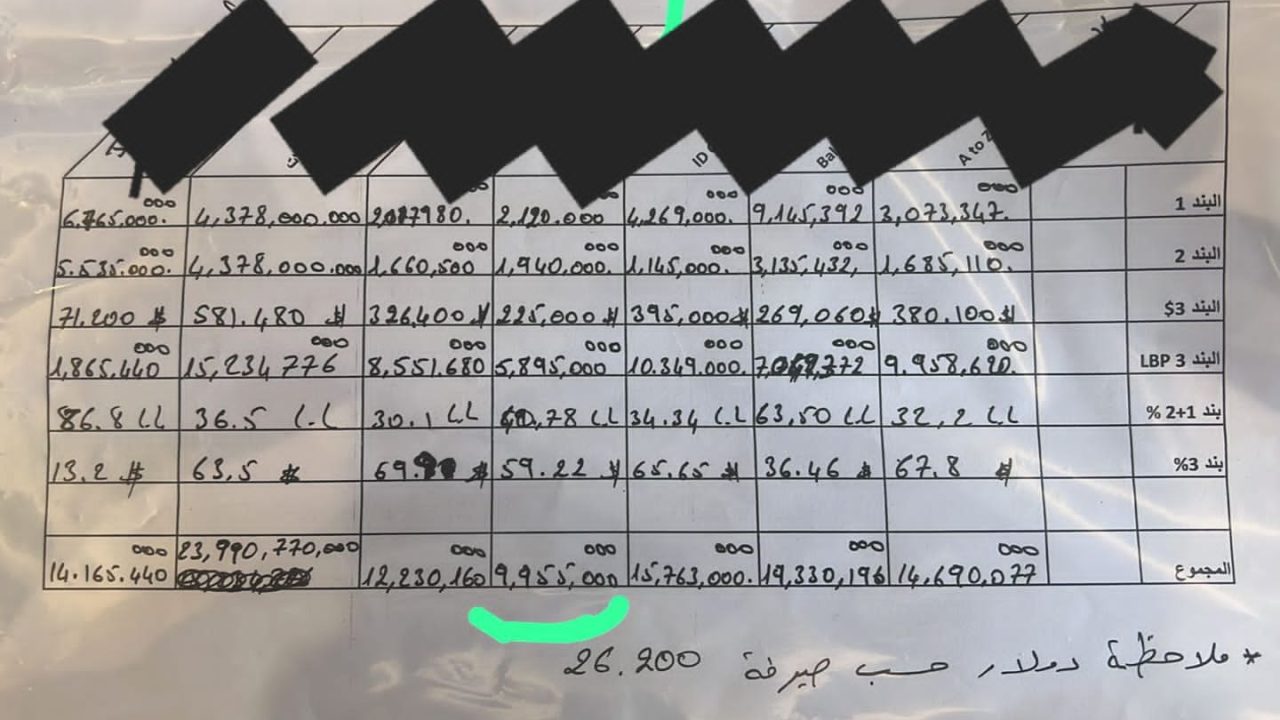 ID
Bal
A to Z
البند 1 3,073,347.000 9,145,392 000 4,269,000.000 2,120.000 000 6.765.000.000 4,378,000.000
البند 2 1,685,110.000 3,135,432,000 1,145,000.000 1,940,000.000 1,660,500 000 4,378,000.000 5.535.000.000
البند 3$ 380.100 $ 269,060 $ 395,000 $ 225,000 $ 326,400 $ 581.480 $ 71.200 $
البند 3 LBP 9.958,620.000 10.349.000.000 5,895,000 000 8,551.680 000 15,234 776 000 1,865.440 000
بند 1+2 % 32,2 LL 63,50 LL 34.34 LL 40,78 LL 30.1 LL 36.5 LL 86.8 LL
بند 3% 67.8 $ 36.46 $ 65.65 $ 59.22 $ 63,5 $ 13.2 $
المجموع 14,690,077 000 19,330,196 000 15,763,000.000 9,955,000 000 12,230,160 000 23,990,770,000 14.165.440 000
* ملاحظة دولار حسب صيرفة 26.200